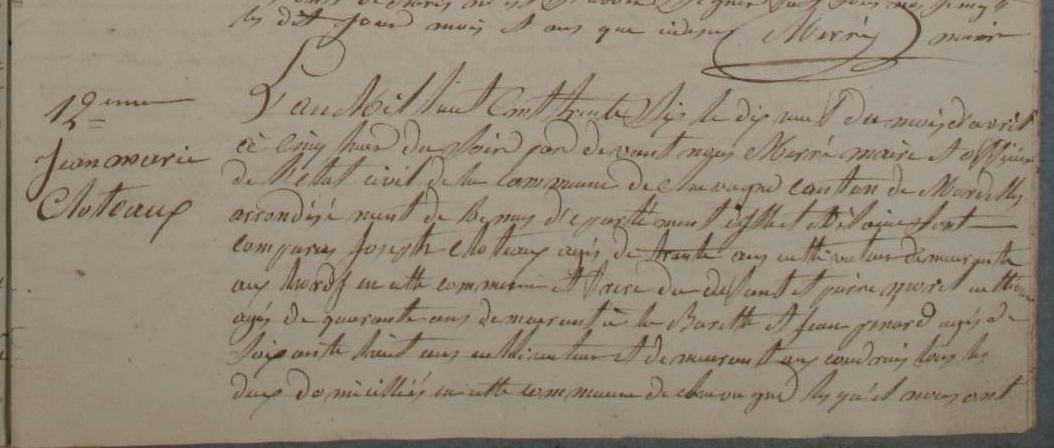 les dit jour mois et ans que idesus Merré maire
12eme
Jean marie
Cloteaux
L'an Mil huit Cent trente Six le dix neuf du mois d'avril
à Cinq heure du Soir par devant nous Merré maire et officier
de l'état civil de la commune de chevaigné canton de Mordelles
arrondisé ment de Rennes d'eparte ment d'ille et Vilaine Sont
comparus Joseph Cloteaux agés de trante ans cultivateur demeurante
aux en cette commune et frere du défunt et pierre noret
agés de quarante ans demeurant à la Barette et jean penard agés de
Soixante huit ans cultivateur et demeurant aux coudrais tous les
deux domicilliés en cette commune de les qu'el nous ont